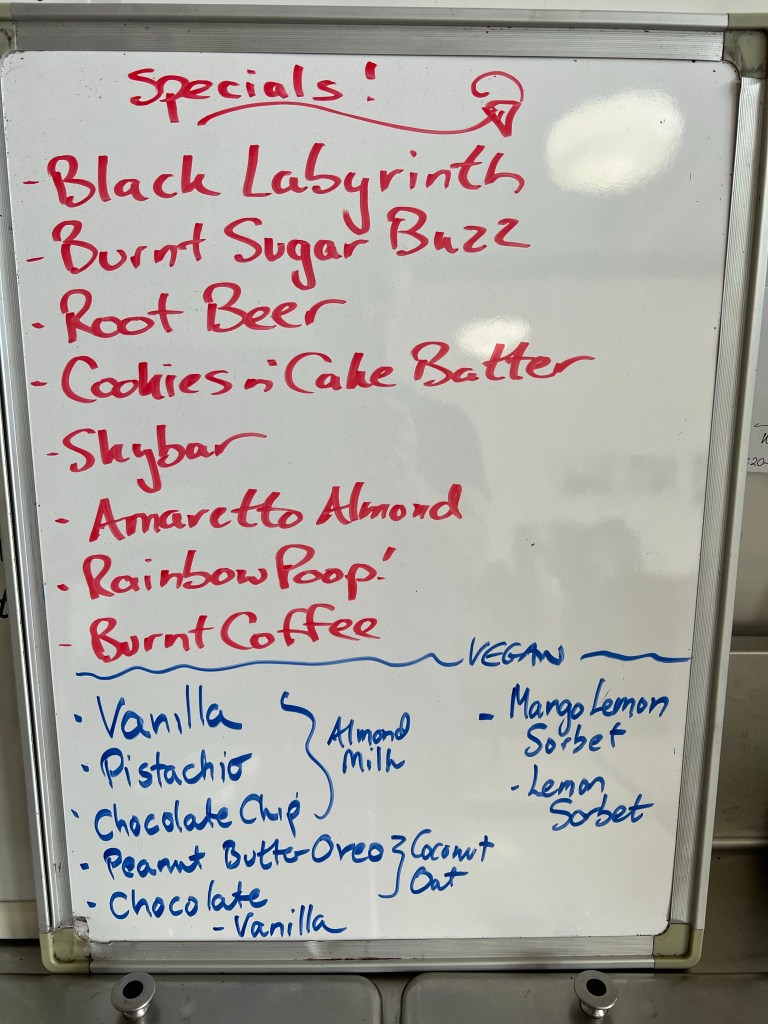 Specials!
- Black Labyrinth
- Burnt Sugar Buzz
- Root Beer
- Cookies n' Cake Batter
- Skybar
- Amaretto Almond
- Rainbow Poop!
- Burnt Coffee
VEGAN
- Vanilla
- Pistachio
- Chocolate Chip
Almond
Milk
- Peanut Butter Oreo
- Chocolate
- Vanilla
Coconut
Oat
- Mango Lemon
Sorbet
- Lemon
Sorbet